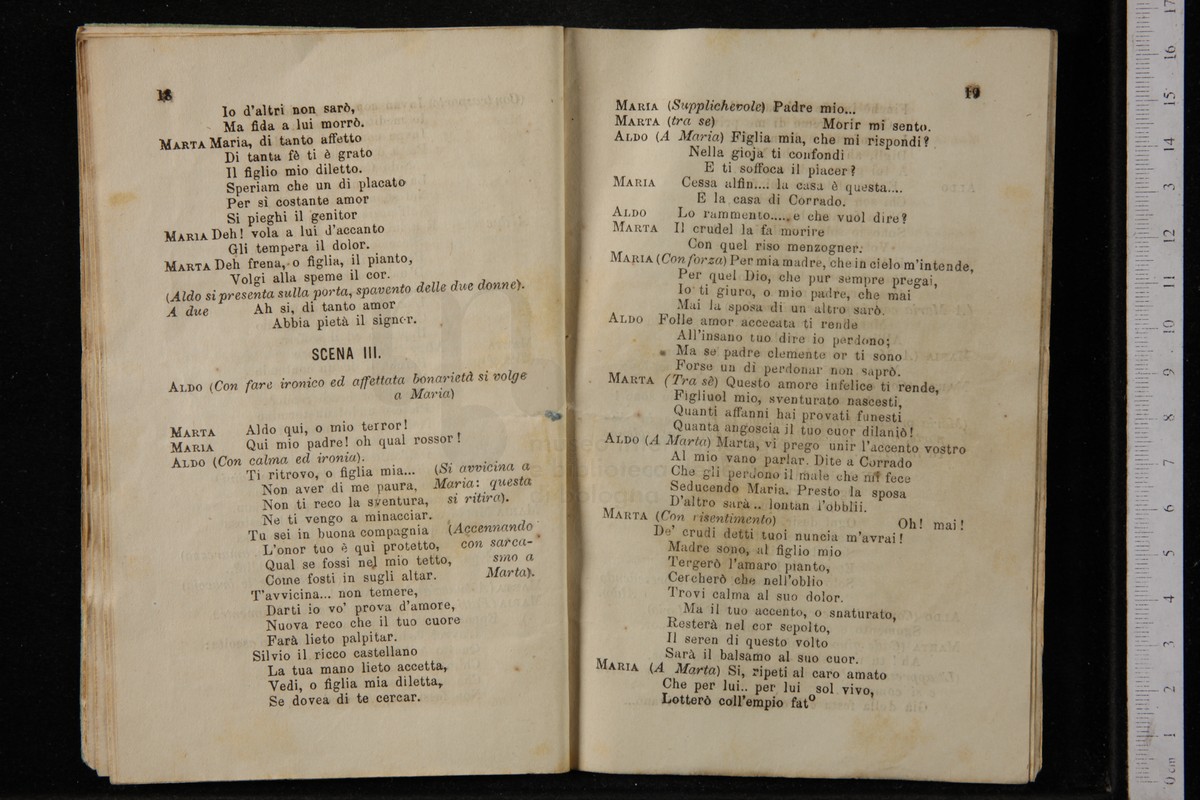 18
Io d'altri non sarò,
Ma fida a lui morrò.
MARTA Maria, di tanto affetto
Di tanta fè ti è grato
Il figlio mio diletto.
Speriam che un di placato
Per sì costante amor
Si pieghi il genitor
MARIA Deh! vola a lui d'accanto
Gli tempera il dolor.
MARTA Deh frena, o figlia, il pianto,
Volgi alla speme il cor.
(Aldo si presenta sulla porta, spavento delle due donne).
A due Ah si, di tanto amor
Abbia pietà il signor.
SCENA III.
ALDO (Con fare ironico ed affettata bonarietà si volge
a Maria)
MARTA Aldo qui, o mio terror!
MARIA Qui mio padre! oh qual rossor!
ALDO (Con calma ed ironia).
Ti ritrovo, o figlia mia... (Si avvicina a
Non aver di me paura, Maria: questa
Non ti reco la sventura, si ritira).
Ne ti vengo a minacciar.
Tu sei in buona compagnia (Accennando
L'onor tuo è quì protetto, con sarca-
Qual se fossi nel mio tetto, smo a
Come fosti in sugli altar. Marta).
T'avvicina... non temere,
Darti io vo' prova d'amore,
Nuova reco che il tuo cuore
Farà lieto palpitar.
Silvio il ricco castellano
La tua mano lieto accetta,
Vedi, o figlia mia diletta,
Se dovea di te cercar.
19
MARIA (Supplichevole) Padre mio...
MARTA (tra se) Morir mi sento.
ALDO (A Maria) Figlia mia, che mi rispondi?
Nella gioja ti confondi
E ti soffoca il piacer?
MARIA Cessa alfin.... la casa è questa....
E la casa di Corrado.
ALDO Lo rammento....., e che vuol dire?
MARTA Il crudel la fa morire
Con quel riso menzogner.
MARIA (Con forza) Per mia madre, che in cielo m'intende,
Per quel Dio, che pur sempre pregai,
Io ti giuro, o mio padre, che mai
Mai la sposa di un altro sarò.
ALDO Folle amor accecata ti rende
All'insano tuo dire io perdono;
Ma se padre clemente or ti sono
Forse un dì perdonar non saprò.
MARTA (Tra sè) Questo amore infelice ti rende,
Figliuol mio, sventurato nascesti,
Quanti affanni hai provati funesti
Quanta angoscia il tuo cuor dilaniò!
ALDO (A Marta) Marta, vi prego unir l'accento vostro
Al mio vano parlar. Dite a Corrado
Che gli perdono il male che mi fece
Seducendo Maria. Presto la sposa
D'altro sarà .. lontan l'obblii.
MARTA (Con risentimento) Oh! mai!
De' crudi detti tuoi nuncia m'avrai!
Madre sono, al figlio mio
Tergerò l'amaro pianto,
Cercherò che nell'oblio
Trovi calma al suo dolor.
Ma il tuo accento, o snaturato,
Resterà nel cor sepolto,
Il seren di questo volto
Sarà il balsamo al suo cuor.
MARIA (A Marta) Si, ripeti al caro amato
Che per lui.. per lui sol vivo,
Lotterò coll'empio fato